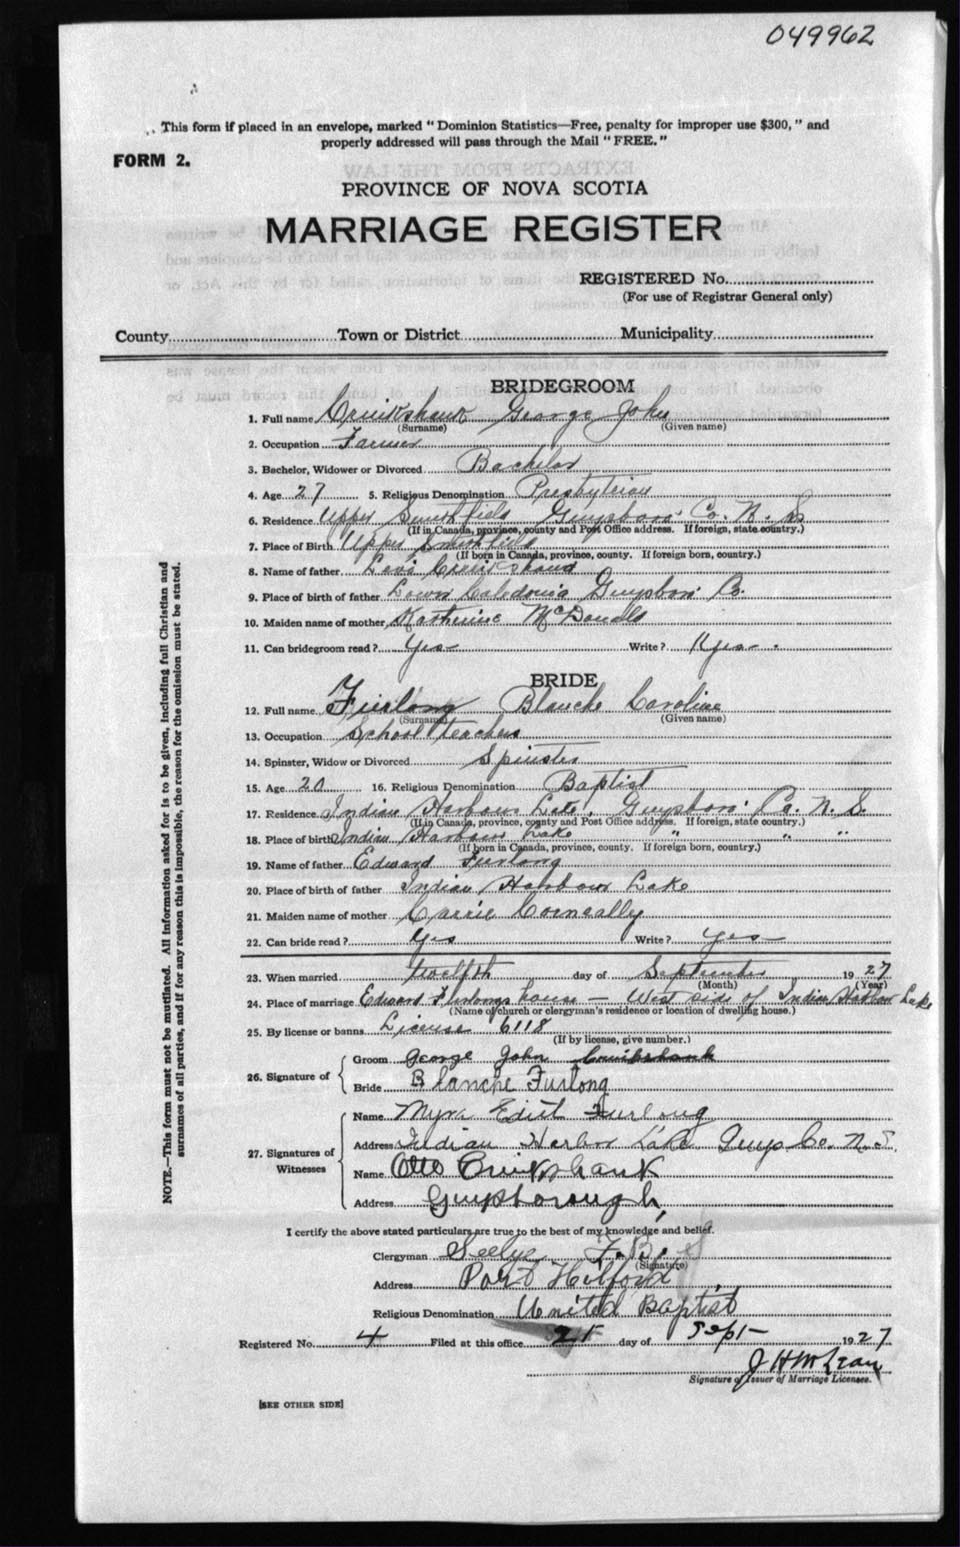 049962
This form if placed in an envelope, marked "Dominion Statistics—Free, penalty for improper use $300," and
properly addressed will pass through the Mail "FREE."
FORM 2.
PROVINCE OF NOVA SCOTIA
MARRIAGE REGISTER
REGISTERED No.
(For use of Registrar General only)
County Town or District Municipality
BRIDEGROOM
1. Full name Cruikshank George John
(Surname) (Given name)
2. Occupation Farmer
3. Bachelor, Widower or Divorced Bachelor
4. Age 27 5. Religious Denomination Presbyterian
6. Residence Upper Smithfield Guysboro Co. N. S
(If in Canada, province, county and Post Office address. If foreign, state country.)
7. Place of Birth Upper Smithfield
(If born in Canada, province, county. If foreign born, country.)
8. Name of father Levi Cruikshank
9. Place of birth of father Lower Caledonia Guysboro Co.
10. Maiden name of mother Katherine McDonald
11. Can bridegroom read? Yes Write? Yes
BRIDE
12. Full name Furlong Blanche Caroline
(Surname) (Given name)
13. Occupation School teacher
14. Spinster, Widow or Divorced Spinster
15. Age 20 16. Religious Denomination Baptist
17. Residence Indian Harbour Lake, Guysboro Co. N. S.
(If in Canada, province, county and Post Office address. If foreign, state country.)
18. Place of birth Indian Harbour Lake " " "
(If born in Canada, province, county. If foreign born, country.)
19. Name of father Edward Furlong
20. Place of birth of father Indian Harbour Lake
21. Maiden name of mother Carrie
22. Can bride read? Yes Write? Yes
23. When married Twelfth day of September 1927
(Month) (Year)
24. Place of marriage Edward Furlongs house — West side of Indian Harbour Lake
(Name of church or clergyman's residence or location of dwelling house.)
25. By license or banns License 6118
(If by license, give number.)
26. Signature of
Groom George John Cruikshank
Bride Blanche Furlong
27. Signatures of Witnesses
Name Myra Edith Furlong
Address Indian Harbor Lake Guys Co. N. S.
Name Otto Cruikshank
Address Guysborough
I certify the above stated particulars are true to the best of my knowledge and belief.
Clergyman Seelye F. B.
(Signature)
Address Port Hilford
Religious Denomination United Baptist
Registered No. 4 Filed at this office day of Sept 1927
J H McLean
Signature of Issuer of Marriage Licenses.
[SEE OTHER SIDE]
NOTE.—This form must not be mutilated. All information asked for is to be given, including full Christian and
surnames of all parties, and if for any reason this is impossible, the reason for the omission must be stated.